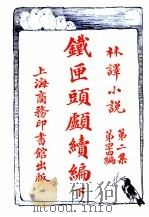 林譯小說
第二集
第四編
鐵匣頭顱續編
下
上海商務印書館出版